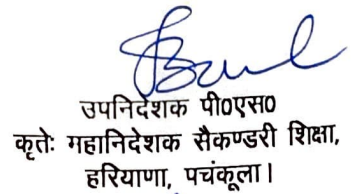 उपनिदेशक पी0एस0
कृतेः महानिदेशक सैकण्डरी शिक्षा,
हरियाणा, पचंकूला।